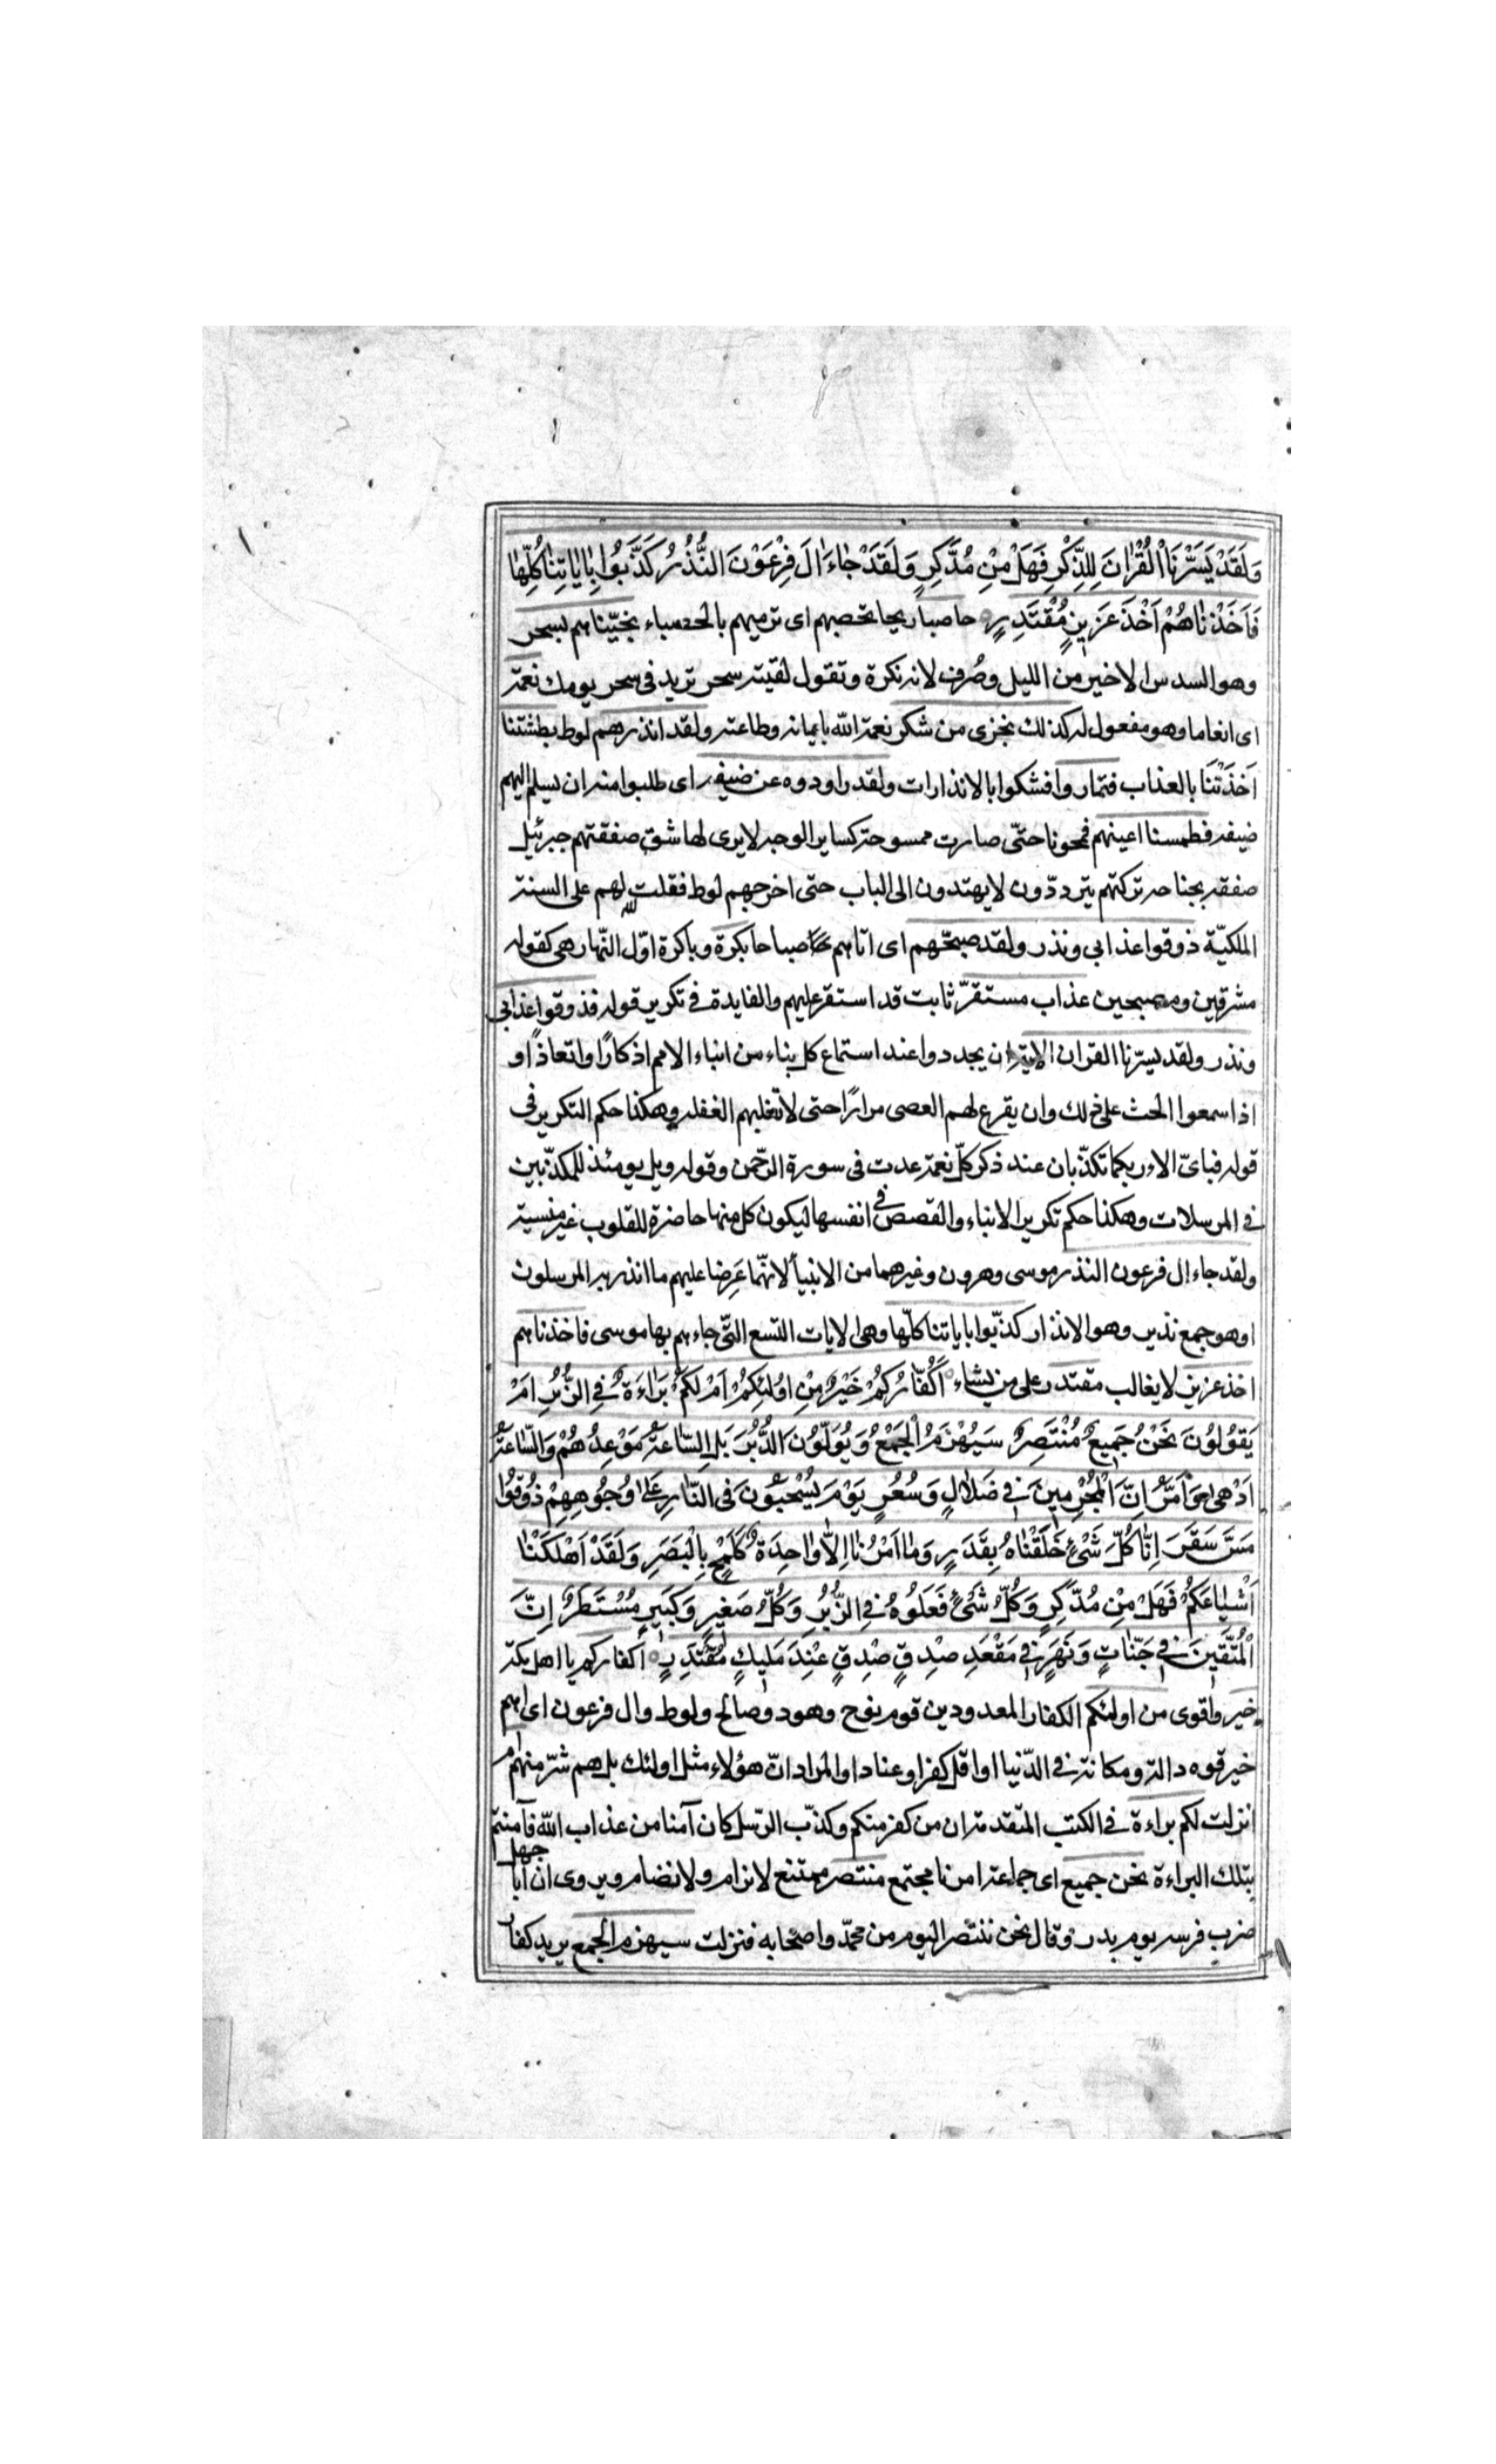 وَلَقَدْ يَسَّرْنَا الْقُرْانَ لِلذِّكْرِ فَهَلْ مِنْ مُدَّكِرٍ وَلَقَدْ جٰاءَ الَ فِرْعَوْنَ النُّذُرُ كَذَّبُوا بِايٰاتِنٰا كُلِّهٰا
فَاَخَذْنٰاهُمْ اَخْذَ عَزِيزٍ مُقْتَدِرٍ حاصبا ريحا تحصبهم اى ترميهم بالحصباء نجّيناهم بسحر
وهو السدس الاخير من الليل وصُرف لانه نكرة وتقول لقيته سحر تريد فى سحر يومك نعمة
اى انعاما وهو مفعول له كذلك نجزى من شكر نعمة الله بايمانه وطاعته ولقد انذرهم لوط بطشتنا
اَخذَتْنَا بالعذاب فتماروا فشكوا بالانذارات ولقد راودوه عن ضيفه اى طلبوا منه ان يسلم اليهم
ضيفه فطمسنا اعينهم فمحونا حتّى صارت ممسوحة كساير الوجه لا يرى لها شق صفقتهم جبرئيل
صفقه بجناحه تركتهم يتردّدون لا يهتدون الى الباب حتى اخرجهم لوط فقلت لهم على السنة
الملكيّة ذوقوا عذابى ونذر ولقد صبحّهم اى اتاهم صباحا بكرة وباكرة اوّل النّهار هى كقوله
مشرقين ومصبحين عذاب مستقرّ ثابت قد استقر عليهم والفايدة فى تكرير قوله فذوقوا عذابى
ونذر ولقد يسّرنا القران الاية ان يجددوا عند استماع كل بناء من انباء الامم اذكارًا واتعاذًا و
اذا سمعوا الحث على ذلك وان يقرع لهم العصى مرارًا حتى لا تغلبهم الغفله وهكذا حكم التكرير فى
قوله فباىّ الاء ربكما تكذّبان عند ذكر كلّ نعمة عدت فى سورة الرّحمن وقوله ويل يومئذ للمكذّبين
فى المرسلات وهكذا حكم تكرير الانباء والقصص فى انفسها ليكون كل منها حاضرة للقلوب غير منسية
ولقد جاء ال فرعون النذر موسى وهرون وغيرهما من الانبيأ لانّهما عَرِضا عليهم ما انذر به المرسلون
او هو جمع نذير وهو الانذار كذّبوا باياتنا كلّها وهى الايات التسع التّى جاءهم بها موسى فاخذناهم
اخذ عزيز لا يغالب مقتدر على من يشاء اَكُفّٰارُكُمْ خَيْرٌ مِنْ اوُلئِكُمْ اَمْ لَكُمْ بَرٰاءَةٌ فِى الزُّبُرِ اَمْ
يَقوُلوُنَ نَحْنُ جَمِيعٌ مُنْتَصِرٌ سَيُهْزَمُ الْجَمْعُ وَيُوَلّوُنَ الدُّبُرَ بَلِ السّٰاعَةُ مَوْعِدُهُمْ وَالسّٰاعَةُ
اَدْهى وَاَمَرُّ اِنَّ الْمُجْرِمِينَ فى ضَلالٍ وَسُعُرٍ يَوْمَ يُسْحَبوُنَ فى النّٰارِ عَلى وُجوُهِهِمْ ذوُقوُا
مَسَّ سَقَرَ اِنّٰا كُلَّ شَىْءٍ خَلَقْنٰاهُ بِقَدَرٍ وَمٰا اَمْرُنٰا اِلّاٰ وٰاحِدَةٌ كَلَمْحٍ بِالْبَصَرِ وَلَقَدْ اَهْلَكْنٰا
اَشْيٰاعَكُمْ فَهَلْ مِنْ مُدَّكِرٍ وَكُلُّ شَىْءٍ فَعَلوُهُ فِى الزُّبُرِ وَكُلُّ صَغيرٍ وَكَبيرٍ مُسْتَطَرٌ اِنَّ
الْمُتَّقينَ فى جَنّٰاتٍ وَنَهَرٍ فى مَقْعَدِ صِدْقٍ صِدِقٍ عِنْدَ مَليكٍ مُقْتَدِرٍ اكفاركم يا اهل مكة
خير واقوى من اولئكم الكفار المعدودين قوم نوح وهود وصالح ولوط وال فرعون اى اهم
خير قوه د الة ومكانة فى الدّنيا او اقل كفرا وعنادا والمراد انّ هؤلاء مثل اولئك بل هم شرّ منهم ام
انزلت لكم براءة فى الكتب المتقدمة ان من كفر منكم وكذّب الرّسل كان آمنا من عذاب الله فآمنتم
بتلك البراءة نحن جميع اى جماعة امرنا مجتمع منتصر ممتنع لا نرام ولا نضام ويروى ان ابا جهل
ضرب فرسه يوم بدر وقال نحن ننتصر اليوم من محمّد واصحابه فنزلت سيهزم الجمع يريد كفار